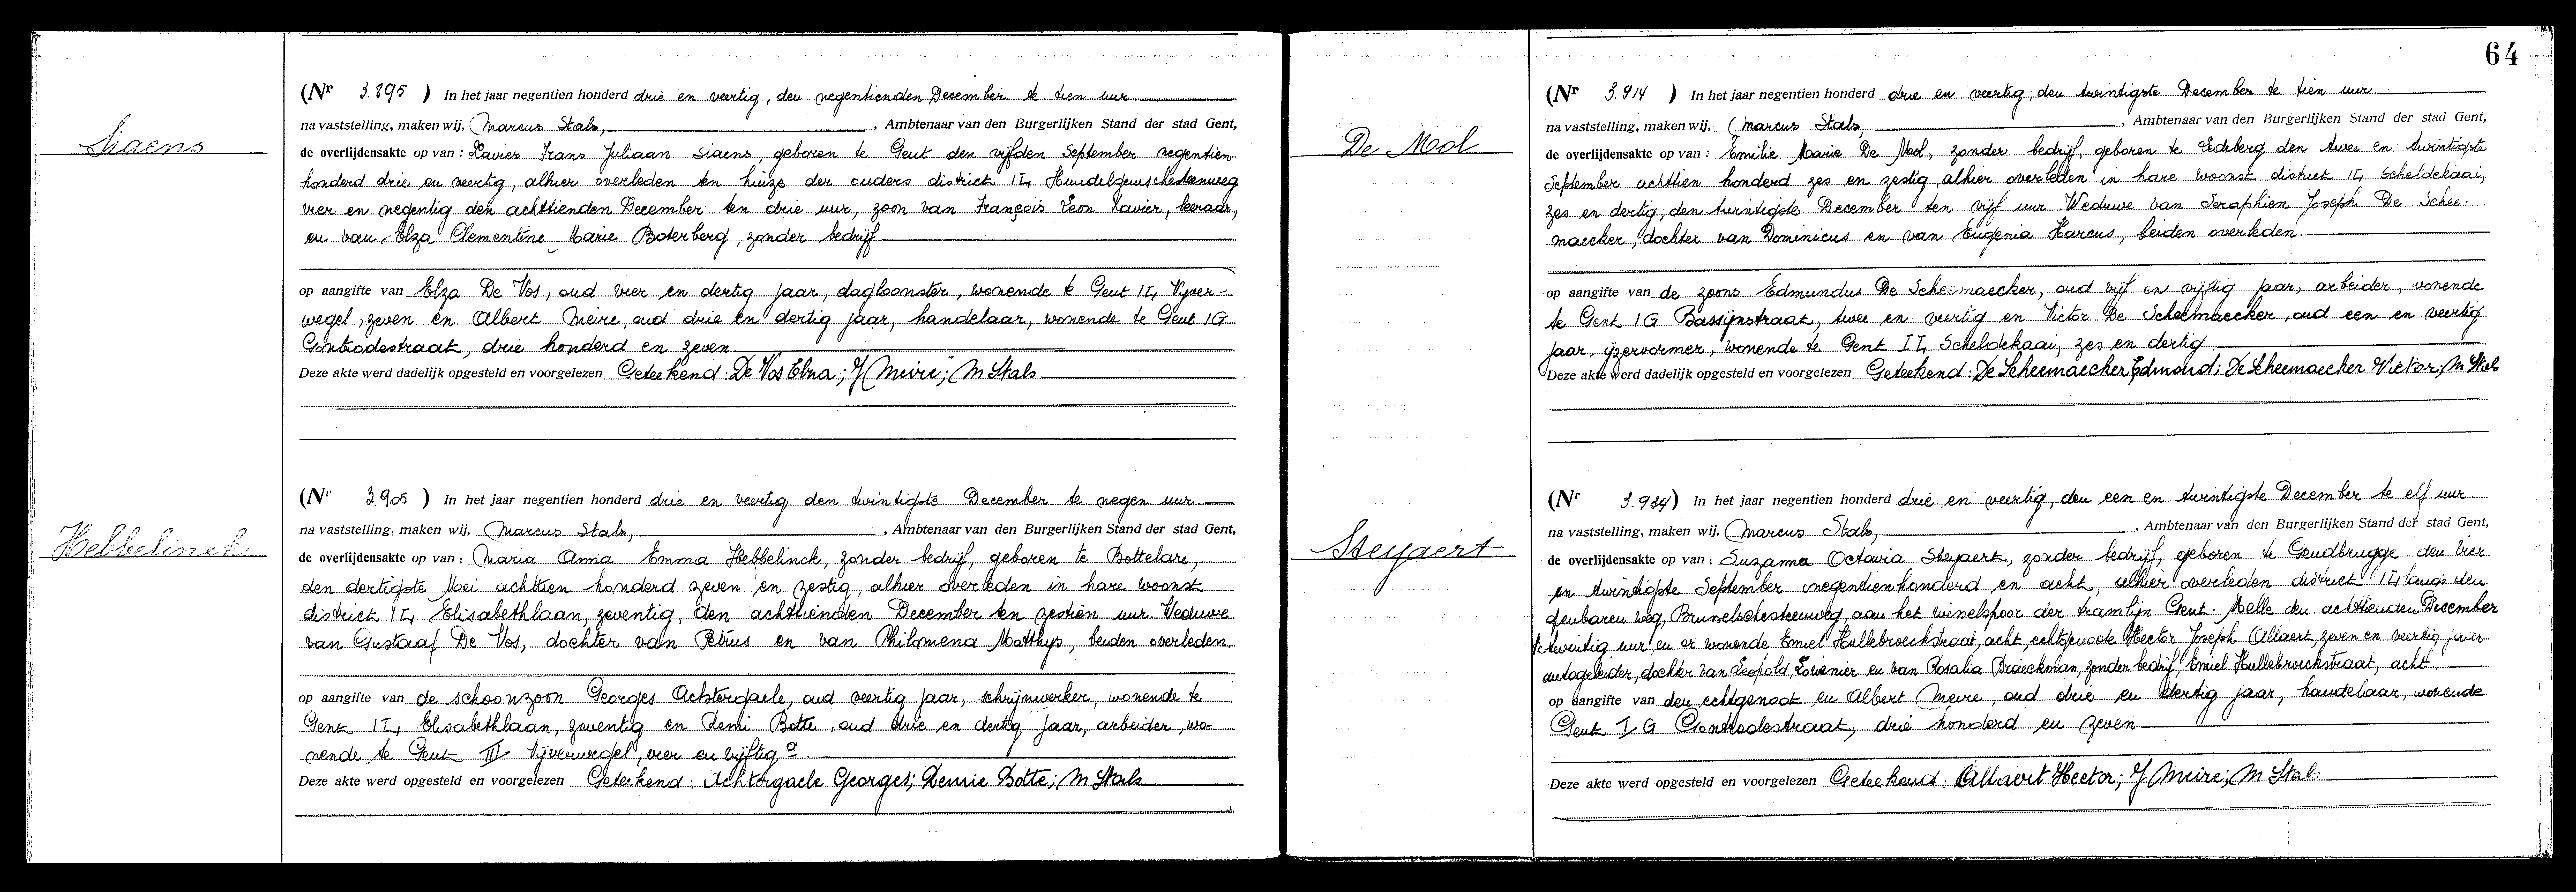 Siaens
(Nr 3.895 ) In het jaar negentien honderd drie en veertig, den negentienden December te tien uur
na vaststelling, maken wij, Marcus Stals, , Ambtenaar van den Burgerlijken Stand der stad Gent,
de overlijdensakte op van : Xavier Frans Juliaan Siaens, geboren te Gent den vijfden September negentien
honderd drie en veertig, alhier overleden ten huize der ouders district II, Hundelgemschesteenweg
vier en negentig den achttienden December ten drie uur, zoon van François Leon Xavier, leeraar,
en van Elza Clementine Marie Boterberg, zonder bedrijf
op aangifte van Elza De Vos, oud vier en dertig jaar, dagloonster, wonende te Gent II, Vijver-
wegel, zeven en Albert Meire, oud drie en dertig jaar, handelaar, wonende te Gent IG
Gontrodestraat, drie honderd en zeven
Deze akte werd dadelijk opgesteld en voorgelezen Geteekend: De Vos Elza; Meire; M Stals
Hebbelinck
(Nr 3.905 ) In het jaar negentien honderd drie en veertig den twintigste December te negen uur
na vaststelling, maken wij, Marcus Stals, , Ambtenaar van den Burgerlijken Stand der stad Gent,
de overlijdensakte op van : Maria Anna Emma Hebbelinck, zonder bedrijf, geboren te Bottelare,
den dertigste Mei achttien honderd zeven en zestig, alhier overleden in hare woonst
district II, Elisabethlaan, zeventig, den achttienden December ten zestien uur. Weduwe
van Gustaaf De Vos, dochter van Petrus en van Philomena Matthys, beiden overleden.
op aangifte van de schoonzoon Georges Achtergaele, oud veertig jaar, schrijnwerker, wonende te
Gent II, Elisabethlaan, zeventig en Remi Botte, oud drie en dertig jaar, arbeider, wo-
nende te Gent III Vijverwegel, vier en vijftig a.
Deze akte werd opgesteld en voorgelezen Geteekend: Achtergaele Georges; Botte; M Stals
64
De Mol
(Nr 3.914 ) In het jaar negentien honderd drie en veertig, den twintigste December te tien uur
na vaststelling, maken wij, Marcus Stals, , Ambtenaar van den Burgerlijken Stand der stad Gent,
de overlijdensakte op van : Emilie Marie De Mol, zonder bedrijf, geboren te Ledeberg den twee en twintigste
September achttien honderd zes en zestig, alhier overleden in hare woonst district II, Scheldekaai,
zes en dertig, den twintigste December ten vijf uur Weduwe van Seraphien Joseph De Schee-
maecker, dochter van Dominicus en van Eugenia Harcus, beiden overleden.
op aangifte van de zoons Edmundus De Scheemaecker, oud vijf en vijftig jaar, arbeider, wonende
te Gent IG Bassijnstraat, twee en veertig en Victor De Scheemaecker, oud een en veertig
jaar, ijzervormer, wonende te Gent II, Scheldekaai, zes en dertig
Deze akte werd dadelijk opgesteld en voorgelezen Geteekend: De Scheemaecker Edmond; De Scheemaecker Victor; M Stals
Steyaert
(Nr 3.924) In het jaar negentien honderd drie en veertig, den een en twintigste December te elf uur
na vaststelling, maken wij, Marcus Stals, , Ambtenaar van den Burgerlijken Stand der stad Gent,
de overlijdensakte op van : Suzanna Octavia Steyaert, zonder bedrijf, geboren te Gendbrugge den vier
en twintigste September negentienhonderd en acht, alhier overleden district II, langs den
openbaren weg, Brusselschesteenweg, aan het wisselspoor der tramlijn Gent-Melle den achttienden December
te twintig uur en er wonende Emiel Hullebroeckstraat, acht, echtgenoote Hector Joseph Allaert, zeven en veertig jaar
autogeleider, dochter van Leopold, en van Rosalia Braeckman, zonder bedrijf, Emiel Hullebroeckstraat, acht
op aangifte van den echtgenoot en Albert Meire, oud drie en dertig jaar, handelaar, wonende
Gent I G Gontrodestraat, drie honderd en zeven
Deze akte werd opgesteld en voorgelezen Geteekend: Allaert Hector; Meire; M Stals